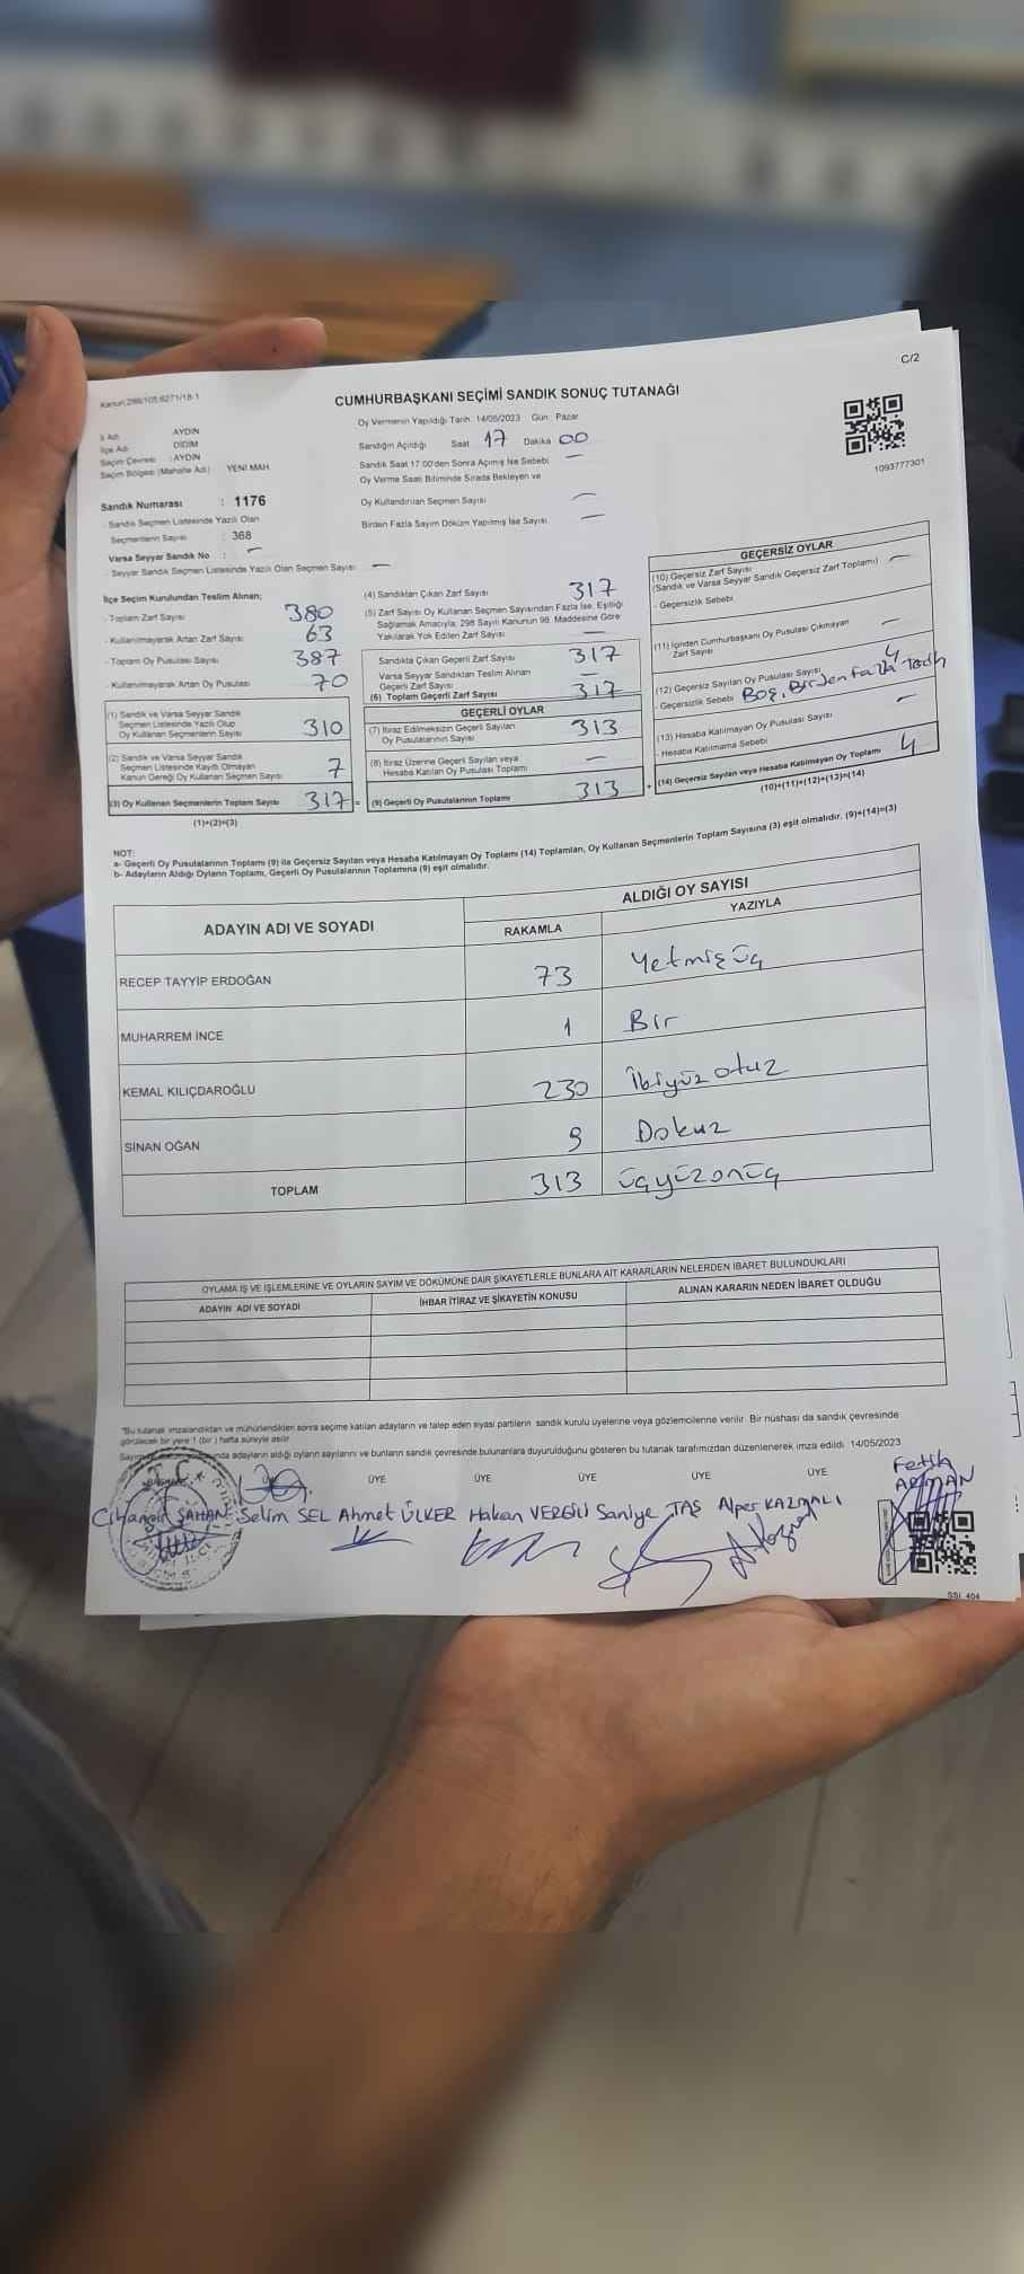 C/2
Kanun:298/105,6271/18-1
CUMHURBAŞKANI SEÇİMİ SANDIK SONUÇ TUTANAĞI
İli Adı : AYDIN
İlçe Adı : DİDİM
Seçim Çevresi : AYDIN
Seçim Bölgesi (Mahalle Adı) YENİ MAH
Oy Vermenin Yapıldığı Tarih: 14/05/2023 Gün: Pazar
Sandığın Açıldığı Saat 17 Dakika 00
Sandık Saat 17:00'den Sonra Açılmış İse Sebebi —
Oy Verme Saati Bitiminde Sırada Bekleyen ve
Oy Kullandırılan Seçmen Sayısı —
Birden Fazla Sayım Döküm Yapılmış İse Sayısı —
1093777301
Sandık Numarası : 1176
- Sandık Seçmen Listesinde Yazılı Olan
Seçmenlerin Sayısı : 368
Varsa Seyyar Sandık No : —
- Seyyar Sandık Seçmen Listesinde Yazılı Olan Seçmen Sayısı —
İlçe Seçim Kurulundan Teslim Alınan;
- Toplam Zarf Sayısı 380
- Kullanılmayarak Artan Zarf Sayısı 63
- Toplam Oy Pusulası Sayısı 387
- Kullanılmayarak Artan Oy Pusulası 70
(1) Sandık ve Varsa Seyyar Sandık
Seçmen Listesinde Yazılı Olup
Oy Kullanan Seçmenlerin Sayısı 310
(2) Sandık ve Varsa Seyyar Sandık
Seçmen Listesinde Kayıtlı Olmayan
Kanun Gereği Oy Kullanan Seçmen Sayısı 7
(3) Oy Kullanan Seçmenlerin Toplam Sayısı 317 =
(1)+(2)=(3)
(4) Sandıktan Çıkan Zarf Sayısı 317
(5) Zarf Sayısı Oy Kullanan Seçmen Sayısından Fazla İse, Eşitliği
Sağlamak Amacıyla, 298 Sayılı Kanunun 98. Maddesine Göre
Yakılarak Yok Edilen Zarf Sayısı —
Sandıkta Çıkan Geçerli Zarf Sayısı 317
Varsa Seyyar Sandıktan Teslim Alınan
Geçerli Zarf Sayısı —
(6) Toplam Geçerli Zarf Sayısı 317
GEÇERLİ OYLAR
(7) İtiraz Edilmeksizin Geçerli Sayılan
Oy Pusulalarının Sayısı 313
(8) İtiraz Üzerine Geçerli Sayılan veya
Hesaba Katılan Oy Pusulası Toplamı —
(9) Geçerli Oy Pusulalarının Toplamı 313 +
GEÇERSİZ OYLAR
(10) Geçersiz Zarf Sayısı
(Sandık ve Varsa Seyyar Sandık Geçersiz Zarf Toplamı) —
- Geçersizlik Sebebi
(11) İçinden Cumhurbaşkanı Oy Pusulası Çıkmayan
Zarf Sayısı —
(12) Geçersiz Sayılan Oy Pusulası Sayısı 4
- Geçersizlik Sebebi Boş, Birden Fazla Tercih
(13) Hesaba Katılmayan Oy Pusulası Sayısı —
- Hesaba Katılmama Sebebi
(14) Geçersiz Sayılan veya Hesaba Katılmayan Oy Toplamı 4
(10)+(11)+(12)+(13)=(14)
NOT:
a- Geçerli Oy Pusulalarının Toplamı (9) ile Geçersiz Sayılan veya Hesaba Katılmayan Oy Toplamı (14) Toplamları, Oy Kullanan Seçmenlerin Toplam Sayısına (3) eşit olmalıdır. (9)+(14)=(3)
b- Adayların Aldığı Oyların Toplamı, Geçerli Oy Pusulalarının Toplamına (9) eşit olmalıdır.
ADAYIN ADI VE SOYADI ALDIĞI OY SAYISI
RAKAMLA YAZIYLA
RECEP TAYYİP ERDOĞAN 73 Yetmişüç
MUHARREM İNCE 1 Bir
KEMAL KILIÇDAROĞLU 230 İkiyüz otuz
SİNAN OĞAN 9 Dokuz
TOPLAM 313 üçyüzonüç
OYLAMA İŞ VE İŞLEMLERİNE VE OYLARIN SAYIM VE DÖKÜMÜNE DAİR ŞİKAYETLERLE BUNLARA AİT KARARLARIN NELERDEN İBARET BULUNDUKLARI
ADAYIN ADI VE SOYADI İHBAR İTİRAZ VE ŞİKAYETİN KONUSU ALINAN KARARIN NEDEN İBARET OLDUĞU
"Bu tutanak imzalandıktan ve mühürlendikten sonra seçime katılan adayların ve talep eden siyasi partilerin sandık kurulu üyelerine veya gözlemcilerine verilir. Bir nüshası da sandık çevresinde
görülecek bir yere 1 (bir) hafta süreyle asılır.
adayların aldığı oyların sayılarını ve bunların sandık çevresinde bulunanlara duyurulduğunu gösteren bu tutanak tarafımızdan düzenlenerek imza edildi. 14/05/2023
T.C.
ÜYE ÜYE ÜYE ÜYE ÜYE
Fetih
ARMAN
Cihangir ŞAHAN Selim SEL Ahmet ÜLKER Hakan VERGİLİ Saniye TAŞ Alper KAZMALI
SSİ: 404